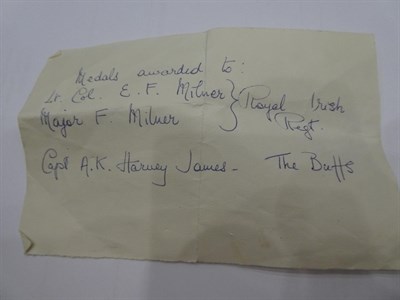 Medals awarded to:
Lt. Col. E. F. Milner } Royal Irish
Major F. Milner } Regt.
Capt A.K. Harvey James - The Buffs